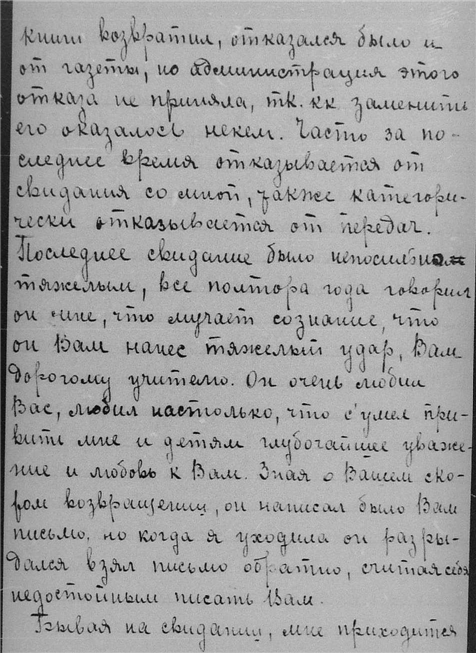 книги возвратил, отказался было и
от газеты, но администрация этого
отказа не приняла, тк. кк заменить
его оказалось некем. Часто за по-
следнее время отказывается от
свидания со мной, также категори-
чески отказывается от передач.
Последнее свидание было непосильно
тяжелым, все полтора года говорил
он мне, что мучает сознание, что
он Вам нанес тяжелый удар, Вам
дорогому учителю. Он очень любил
Вас, любил настолько, что с'умел при-
вить мне и детям глубочайшее уваже-
ние и любовь к Вам. Зная о Вашем ско-
ром возвращении, он написал было Вам
письмо, но когда я уходила он разры-
дался взял письмо обратно, считая себя
недостойным писать Вам.
Бывая на свидании, мне приходится